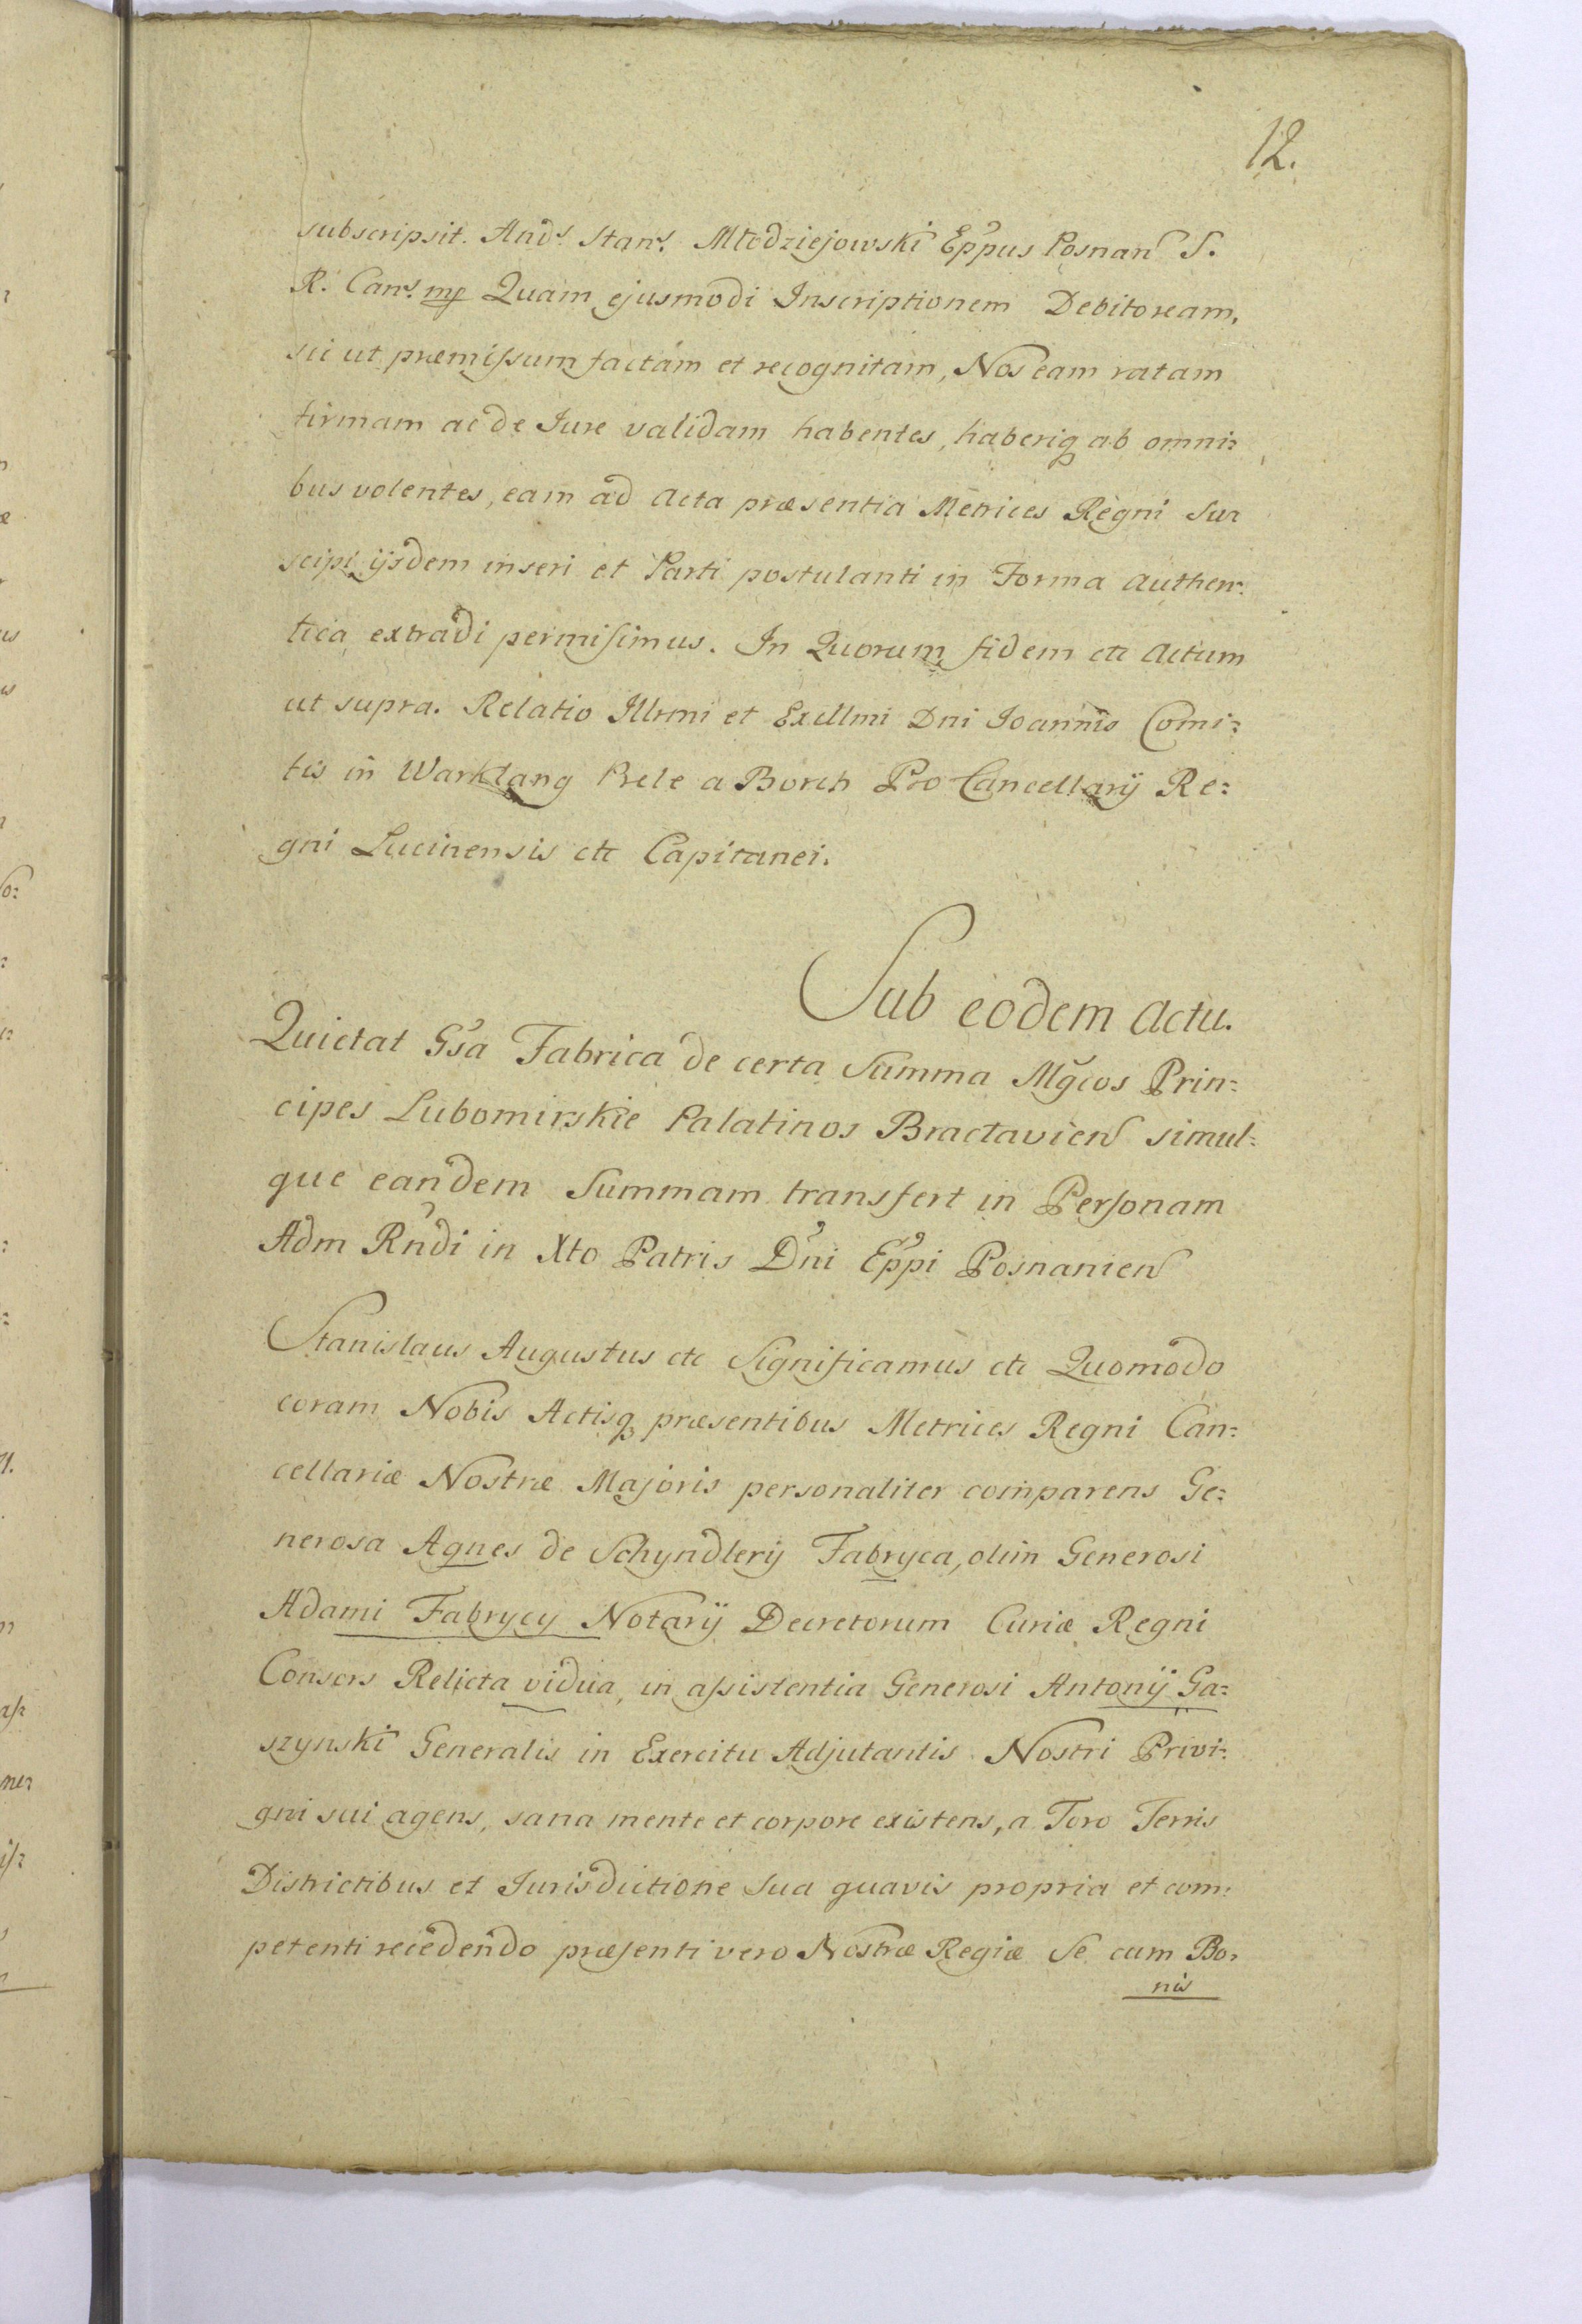 12.
subscripsit. Andˢ. Stanˢ. Młodziejowski Eppus Posnan S.
R. Canˢ. mp Quam ejusmodi Inscriptionem Debitoream,
sic ut præmissum factam et recognitam, Nos eam ratam
firmam ac de Iure validam habentes, haberiq ab omni:
bus volentes, eam ad Acta præsentia Metrices Regni Sus
scipi ijsdem inseri et Parti postulanti in Forma Authen:
tica extradi permisimus. In Quorum fidem etc Actum
ut supra. Relatio Illrmi et Excllmi Dni Ioannis Comi:
tis in Warklang Prele a Borch Pro Cancellarij Re:
gni Lucinensis etc Capitanei.
Sub eodem Actu.
Quietat Gsa Fabrica de certa Summa Mgcos Prin:
cipes Lubomirskie Palatinos Bractavien simul:
que eandem Summam transfert in Personam
Adm Rndi in Xto Patris Dni Eppi Posnanien
Stanislaus Augustus etc Significamus etc Quomodo
coram Nobis Actisq præsentibus Metrices Regni Can:
cellariæ Nostræ Majoris personaliter comparens Ge:
nerosa Agnes de Schyndlery Fabryca, olim Generosi
Adami Fabrycy Notarij Decretorum Curiæ Regni
Consors Relicta vidua, in assistentia Generosi Antonij Ga:
szynski Generalis in Exercitu Adjutantis Nostri Privi:
gni sui agens, sana mente et corpore existens, a Foro Terris
Districtibus et Iurisdictione Sua quavis propria et com:
petenti recedendo præsenti vero Nostræ Regiæ Se cum Bo:
nis